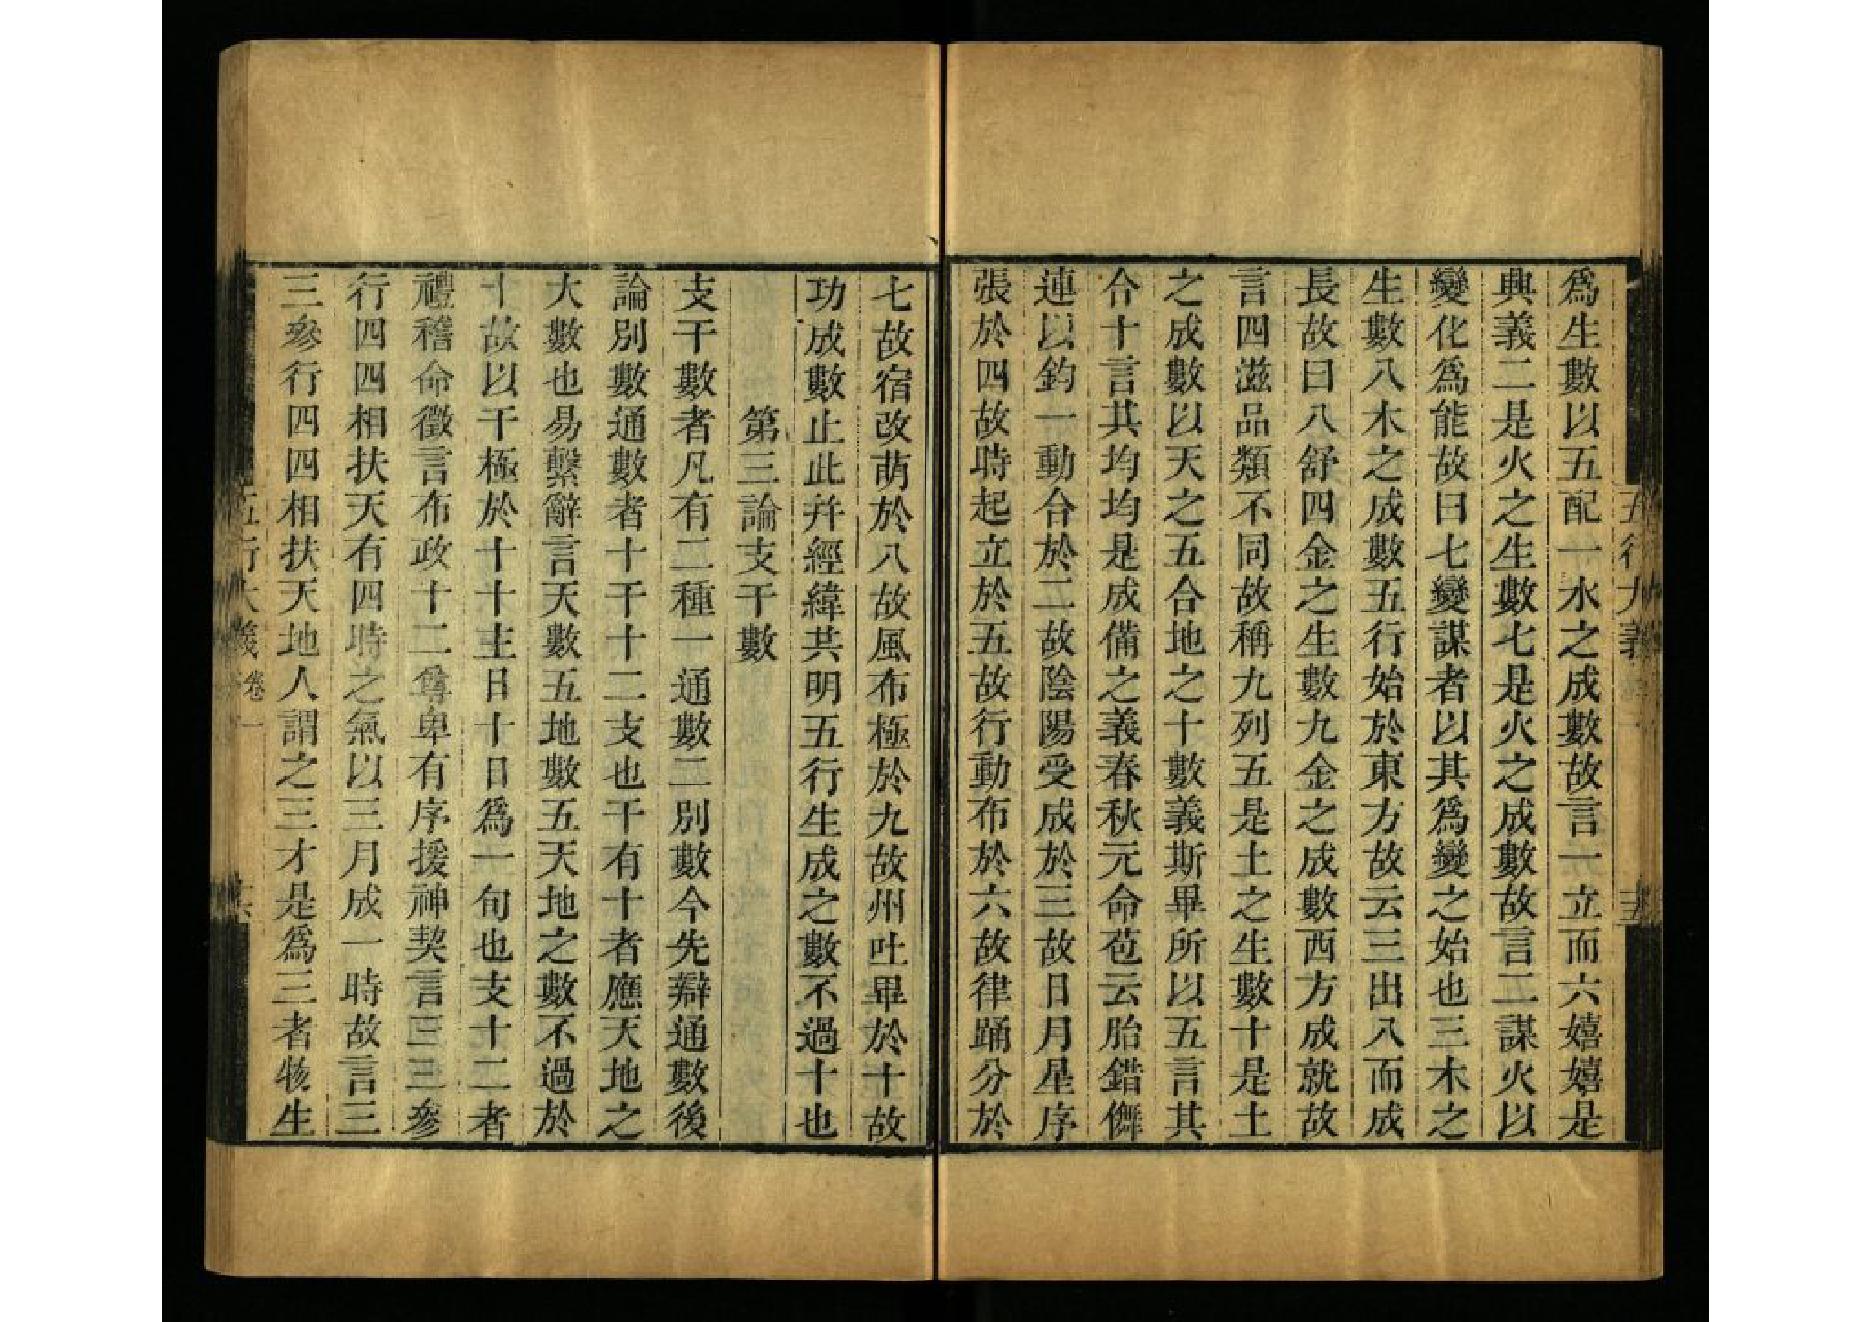 爲生數以五配一水之成數故言一立而六嬉嬉是
典義二是火之生數七是火之成數故言二謀火以
變化爲能故曰七變謀者以其爲變之始也三木之
生數八木之成數五行始於東方故云三出八而成
長故曰八舒四金之生數九金之成數西方成就故
言四滋品類不同故稱九列五是土之生數十是土
之成數以天之五合地之十數義斯畢所以五言其
合十言其均均是成備之義春秋元命苞云胎錯儛
連以鈞一動合於二故陰陽受成於三故日月星序
張於四故時起立於五故行動布於六故律踊分於
七故宿改萌於八故風布極於九故州吐畢於十故
功成數止此幷經緯共明五行生成之數不過十也
第三論支干數
支干數者凡有二種一通數二別數今先辯通數後
論別數通數者十干十二支也干有十者應天地之
大數也易繫辭言天數五地數五天地之數不過於
十故以干極於十十主日十日爲一旬也支十二者
禮稽命徵言布政十二尊卑有序援神契言三三參
行四四相扶天有四時之氣以三月成一時故言三
三參行四四相扶天地人謂之三才是爲三者物生
五行大義卷一